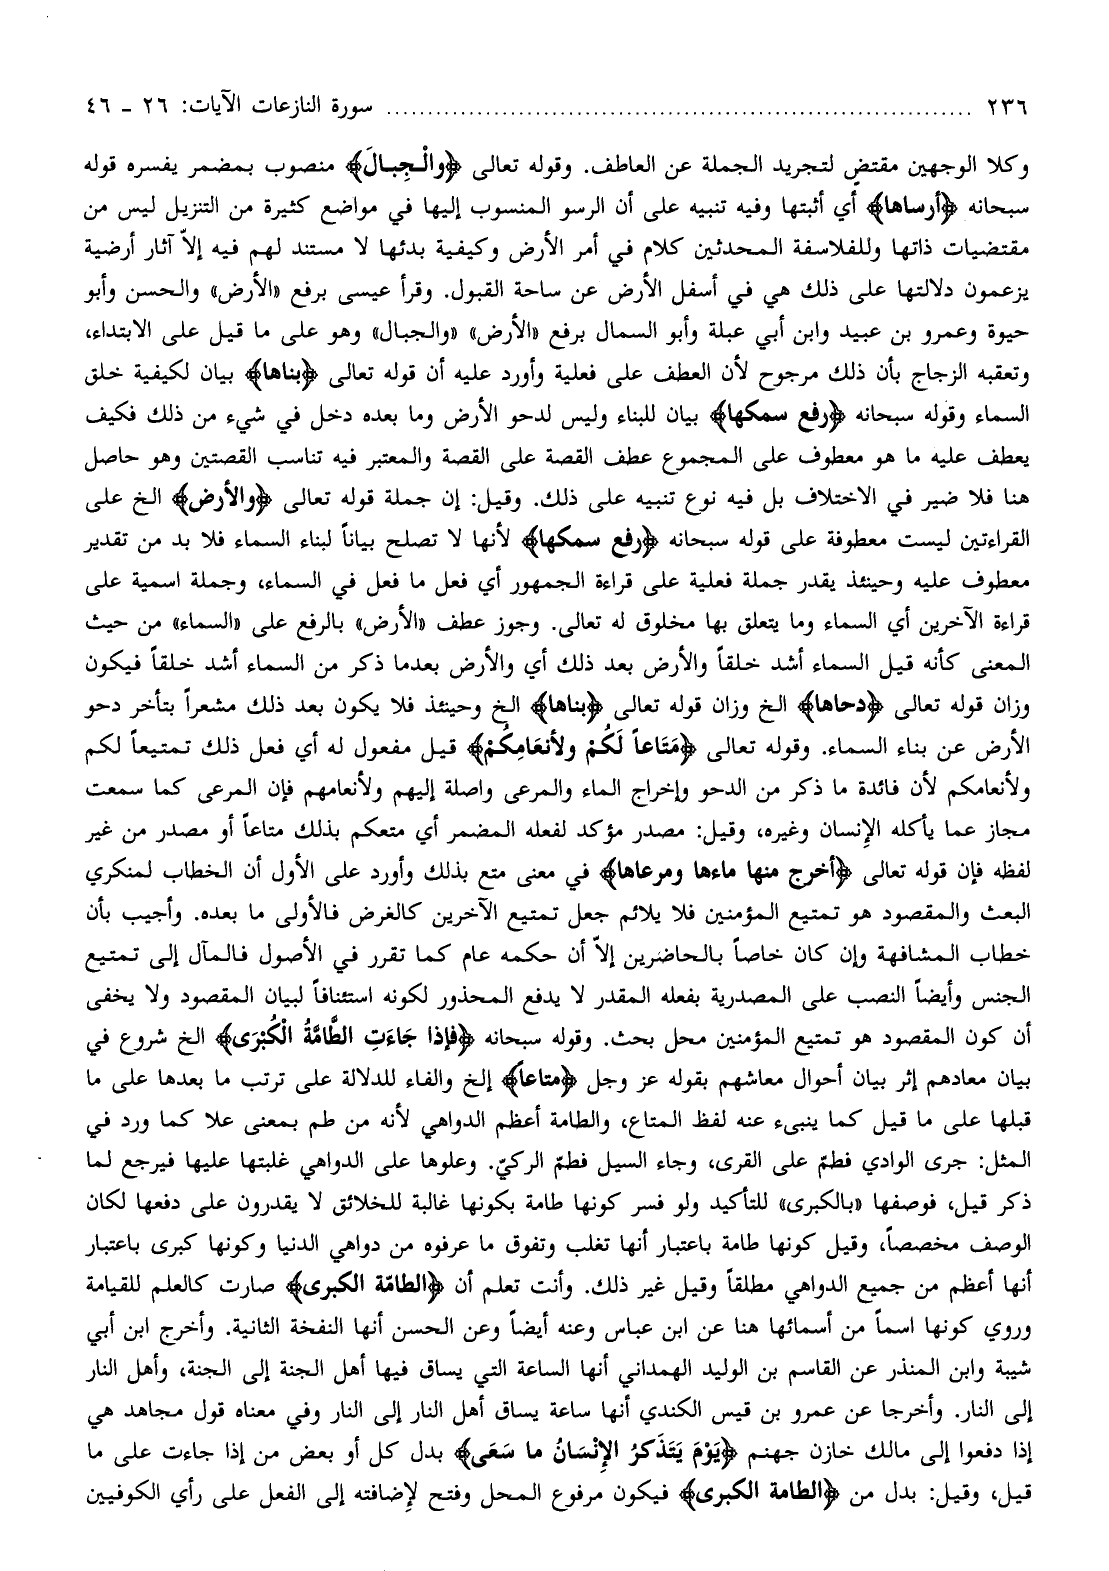 ٢٣٦ ........................................ سورة النازعات الآيات: ٢٦ - ٤٦
وكلا الوجهين مقتضٍ لتجريد الجملة عن العاطف. وقوله تعالى ﴿والْجِبالَ﴾ منصوب بمضمر يفسره قوله
سبحانه ﴿أرساها﴾ أي أثبتها وفيه تنبيه على أن الرسو المنسوب إليها في مواضع كثيرة من التنزيل ليس من
مقتضيات ذاتها وللفلاسفة المحدثين كلام في أمر الأرض وكيفية بدئها لا مستند لهم فيه إلاّ آثار أرضية
يزعمون دلالتها على ذلك هي في أسفل الأرض عن ساحة القبول. وقرأ عيسى برفع «الأرض» والحسن وأبو
حيوة وعمرو بن عبيد وابن أبي عبلة وأبو السمال برفع «الأرض» «والجبال» وهو على ما قيل على الابتداء،
وتعقبه الزجاج بأن ذلك مرجوح لأن العطف على فعلية وأورد عليه أن قوله تعالى ﴿بناها﴾ بيان لكيفية خلق
السماء وقوله سبحانه ﴿رفع سمكها﴾ بيان للبناء وليس لدحو الأرض وما بعده دخل في شيء من ذلك فكيف
يعطف عليه ما هو معطوف على المجموع عطف القصة على القصة والمعتبر فيه تناسب القصتين وهو حاصل
هنا فلا ضير في الاختلاف بل فيه نوع تنبيه على ذلك. وقيل: إن جملة قوله تعالى ﴿والأرض﴾ الخ على
القراءتين ليست معطوفة على قوله سبحانه ﴿رفع سمكها﴾ لأنها لا تصلح بياناً لبناء السماء فلا بد من تقدير
معطوف عليه وحينئذ يقدر جملة فعلية على قراءة الجمهور أي فعل ما فعل في السماء، وجملة اسمية على
قراءة الآخرين أي السماء وما يتعلق بها مخلوق له تعالى. وجوز عطف «الأرض» بالرفع على «السماء» من حيث
المعنى كأنه قيل السماء أشد خلقاً والأرض بعد ذلك أي والأرض بعدما ذكر من السماء أشد خلقاً فيكون
وزان قوله تعالى ﴿دحاها﴾ الخ وزان قوله تعالى ﴿بناها﴾ الخ وحينئذ فلا يكون بعد ذلك مشعراً بتأخر دحو
الأرض عن بناء السماء. وقوله تعالى ﴿مَتَاعاً لَكُمْ ولأنعَامِكُمْ﴾ قيل مفعول له أي فعل ذلك تمتيعاً لكم
ولأنعامكم لأن فائدة ما ذكر من الدحو وإخراج الماء والمرعى واصلة إليهم ولأنعامهم فإن المرعى كما سمعت
مجاز عما يأكله الإنسان وغيره، وقيل: مصدر مؤكد لفعله المضمر أي متعكم بذلك متاعاً أو مصدر من غير
لفظه فإن قوله تعالى ﴿أخرج منها ماءها ومرعاها﴾ في معنى متع بذلك وأورد على الأول أن الخطاب لمنكري
البعث والمقصود هو تمتيع المؤمنين فلا يلائم جعل تمتيع الآخرين كالغرض فالأولى ما بعده. وأجيب بأن
خطاب المشافهة وإن كان خاصاً بالحاضرين إلاّ أن حكمه عام كما تقرر في الأصول فالمآل إلى تمتيع
الجنس وأيضاً النصب على المصدرية بفعله المقدر لا يدفع المحذور لكونه استئنافاً لبيان المقصود ولا يخفى
أن كون المقصود هو تمتيع المؤمنين محل بحث. وقوله سبحانه ﴿فإذا جَاءَتِ الطَّامَّةُ الْكُبْرَى﴾ الخ شروع في
بيان معادهم إثر بيان أحوال معاشهم بقوله عز وجل ﴿متاعاً﴾ إلخ والفاء للدلالة على ترتب ما بعدها على ما
قبلها على ما قيل كما ينبىء عنه لفظ المتاع، والطامة أعظم الدواهي لأنه من طم بمعنى علا كما ورد في
المثل: جرى الوادي فطمّ على القرى، وجاء السيل فطمّ الركيّ. وعلوها على الدواهي غلبتها عليها فيرجع لما
ذكر قيل، فوصفها «بالكبرى» للتأكيد ولو فسر كونها طامة بكونها غالبة للخلائق لا يقدرون على دفعها لكان
الوصف مخصصاً، وقيل كونها طامة باعتبار أنها تغلب وتفوق ما عرفوه من دواهي الدنيا وكونها كبرى باعتبار
أنها أعظم من جميع الدواهي مطلقاً وقيل غير ذلك. وأنت تعلم أن ﴿الطامّة الكبرى﴾ صارت كالعلم للقيامة
وروي كونها اسماً من أسمائها هنا عن ابن عباس وعنه أيضاً وعن الحسن أنها النفخة الثانية. وأخرج ابن أبي
شيبة وابن المنذر عن القاسم بن الوليد الهمداني أنها الساعة التي يساق فيها أهل الجنة إلى الجنة، وأهل النار
إلى النار. وأخرجا عن عمرو بن قيس الكندي أنها ساعة يساق أهل النار إلى النار وفي معناه قول مجاهد هي
إذا دفعوا إلى مالك خازن جهنم ﴿يَوْمَ يَتَذَكرُ الإنْسَانُ ما سَعَى﴾ بدل كل أو بعض من إذا جاءت على ما
قيل، وقيل: بدل من ﴿الطامة الكبرى﴾ فيكون مرفوع المحل وفتح لإضافته إلى الفعل على رأي الكوفيين